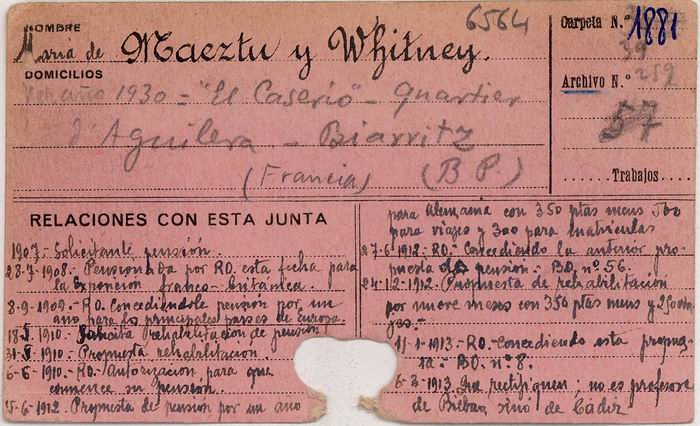 NOMBRE
María de Maeztu y Whitney.
6564
Carpeta N.º 1881
39
DOMICILIOS
Archivo N.º 259
57
año 1930 - "El Caserio" - Quartier
d'Aguilera - Biarritz
(Francia) (B P.)
Trabajos
RELACIONES CON ESTA JUNTA
1907.- Solicitante pensión.
28-7-1908.- Pensionada por RO. esta fecha para
la Exposición franco-britanica.
8-9-1909.- RO. Concediendole pensión por un
año para los principales países de europa.
18-I-1910.- Solicita rehabilitacion de pensión
31-I-1910.- Propuesta rehabilitacion.
6-6-1910.- RO. Autorizacion para que
comience su pension.
15-6-1912. Propuesta de pension por un año
para Alemania con 350 ptas mens 500
para viajes y 300 para matriculas
27-6-1912.- RO. Concediendo la anterior pro-
puesta de pension.- BO. nº 56.
24-12-1912. Propuesta de rehabilitación
por nueve meses con 350 ptas mens y
11-1-1913.- RO. Concediendo esta propues-
ta.- BO. nº 8.
6-3-1913 Que rectifiquen; no es profesora
de Bilbao, sino de Cádiz